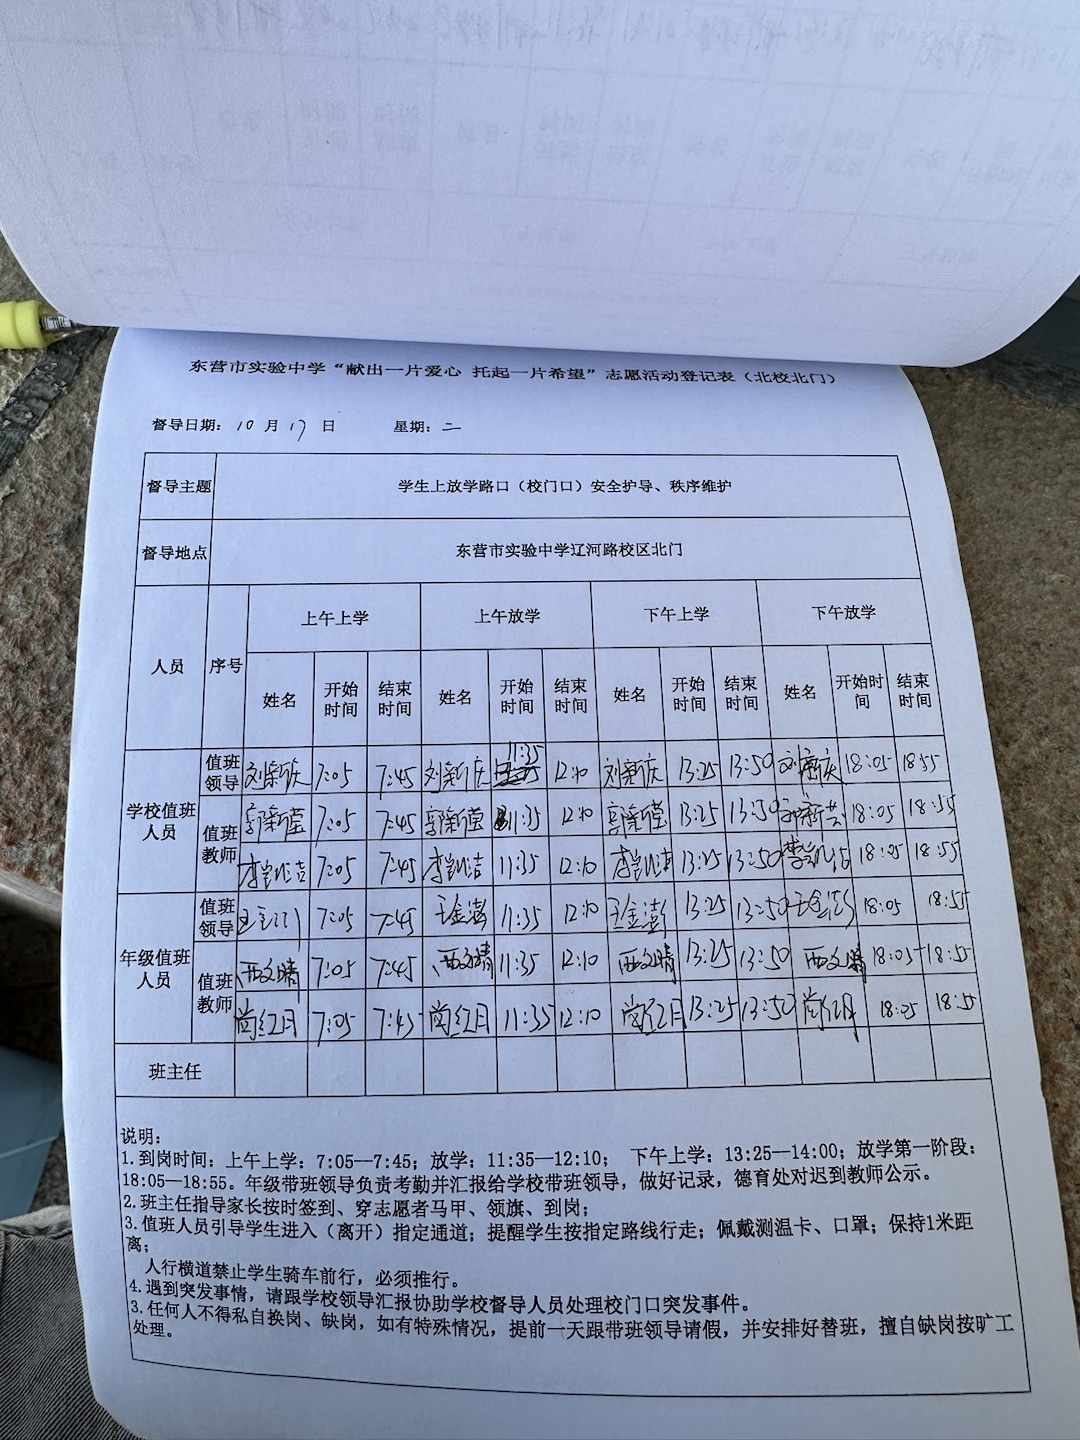 东营市实验中学“献出一片爱心 托起一片希望”志愿活动登记表（北校北门）
督导日期：10月17日 星期：二
督导主题 学生上放学路口（校门口）安全护导、秩序维护
督导地点 东营市实验中学辽河路校区北门
人员 序号 上午上学 上午放学 下午上学 下午放学
姓名 开始时间 结束时间 姓名 开始时间 结束时间 姓名 开始时间 结束时间 姓名 开始时间 结束时间
学校值班人员 值班领导 刘新庆 7:05 7:45 刘新庆 11:35 12:10 刘新庆 13:25 13:50 刘新庆 18:05 18:55
值班教师 7:05 7:45 11:35 12:10 13:25 13:50 18:05 18:55
李凯洁 7:05 7:45 李凯洁 11:35 12:10 李凯洁 13:25 13:50 李凯洁 18:05 18:55
年级值班人员 值班领导 7:05 7:45 王金澎 11:35 12:10 王金澎 13:25 13:50 王金澎 18:05 18:55
值班教师 西文晴 7:05 7:45 西文晴 11:35 12:10 西文晴 13:25 13:50 西文晴 18:05 18:55
尚红月 7:05 7:45 尚红月 11:35 12:10 尚红月 13:25 13:50 尚红月 18:05 18:55
班主任
说明：
1.到岗时间：上午上学：7:05—7:45；放学：11:35—12:10； 下午上学：13:25—14:00；放学第一阶段：
18:05—18:55。年级带班领导负责考勤并汇报给学校带班领导，做好记录，德育处对迟到教师公示。
2.班主任指导家长按时签到、穿志愿者马甲、领旗、到岗；
3.值班人员引导学生进入（离开）指定通道；提醒学生按指定路线行走；佩戴测温卡、口罩；保持1米距
离；
人行横道禁止学生骑车前行，必须推行。
4.遇到突发事情，请跟学校领导汇报协助学校督导人员处理校门口突发事件。
3.任何人不得私自换岗、缺岗，如有特殊情况，提前一天跟带班领导请假，并安排好替班，擅自缺岗按旷工
处理。